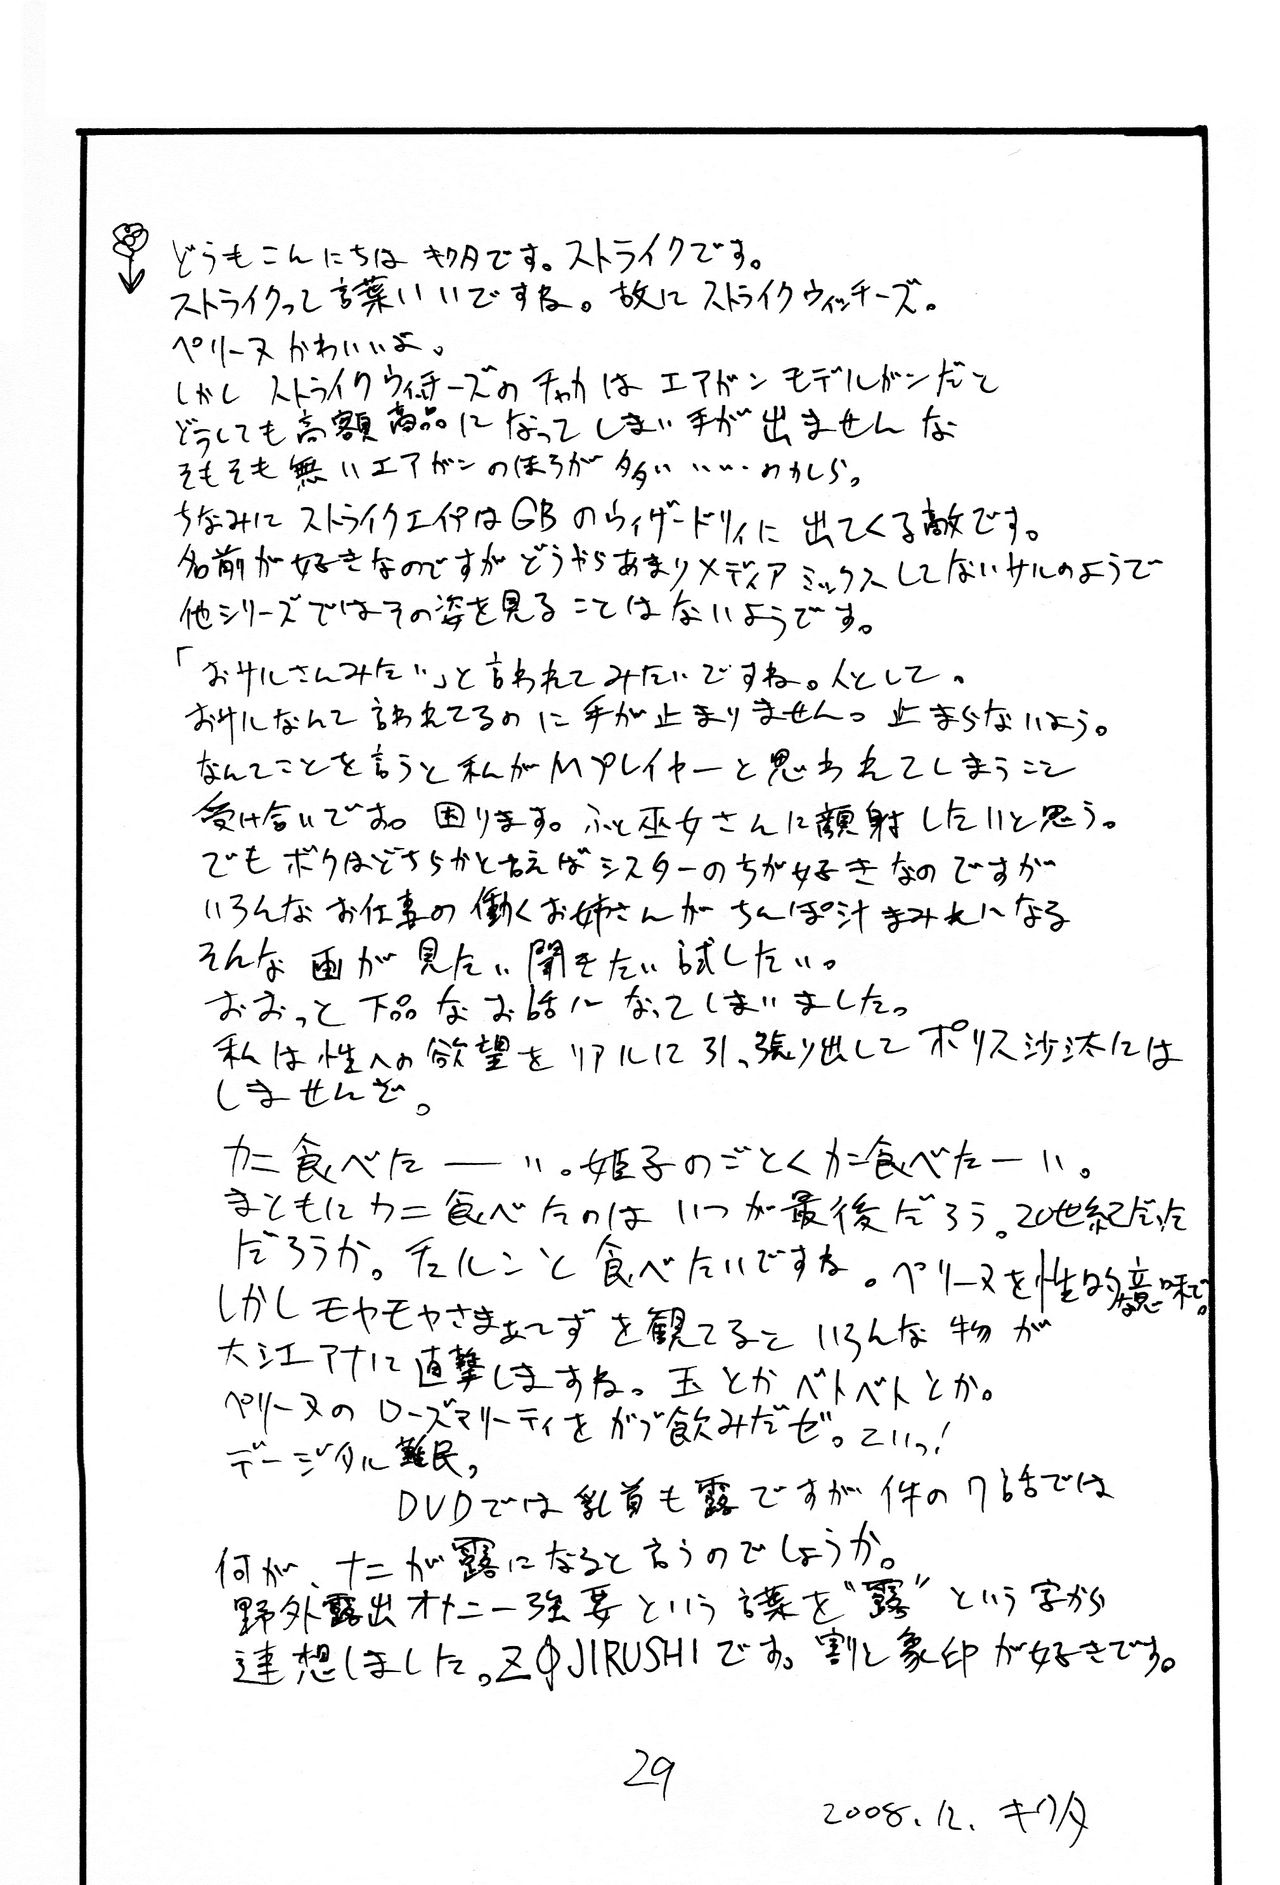 どうもこんにちは キクタです。ストライクです。
ストライクって言葉いいですね。故にストライクウィッチーズ。
ペリーヌかわいいよ。
しかしストライクウィッチーズのチャカはエアガンモデルガンだと
どうしても高額商品になってしまい手が出ませんな
そもそも無いエアガンのほうが多い‥‥かしら。
ちなみにストライクエイプはGBのウィザードリィに出てくる敵です。
名前が好きなのですがどうやらあまりメディアミックスしてないサルのようで
他シリーズではその姿を見ることはないようです。
「おサルさんみたい」と言われてみたいですね。人として。
おサルなんて言われてるのに手が止まりません。止まらないよう。
なんてことを言うと私がMプレイヤーと思われてしまうこと
受け合いです。困ります。ふと巫女さんに顔射したいと思う。
でもボクはどちらかと言えばシスターのちが好きなのですが
いろんなお仕事の働くお姉さんがちんぽ汁まみれになる
そんな画が見たい聞きたい試したい。
おおっと下品なお話になってしまいました。
私は性への欲望をリアルに引っ張り出してポリス沙汰には
しませんぞ。
カニ食べたーい。姫子のごとくカニ食べたーい。
まともにカニ食べたのはいつが最後だろう。20世紀だった
だろうか。チュルンと食べたいですね。ペリーヌを性的な意味で。
しかしモヤモヤさまぁ〜ずを観てるといろんな物が
大江アナに直撃しますね。玉とかベトベトとか。
ペリーヌのローズマリーティをがぶ飲みだゼ。こいっ!
デージタル難民。
DVDでは乳首も露ですが件の7話では
何が、ナニが露になると言うのでしょうか。
野外露出オナニー強要という言葉を“露”という字から
連想しました。ZΦJIRUSHIです。割と象印が好きです。
29
2008.12. キクタ